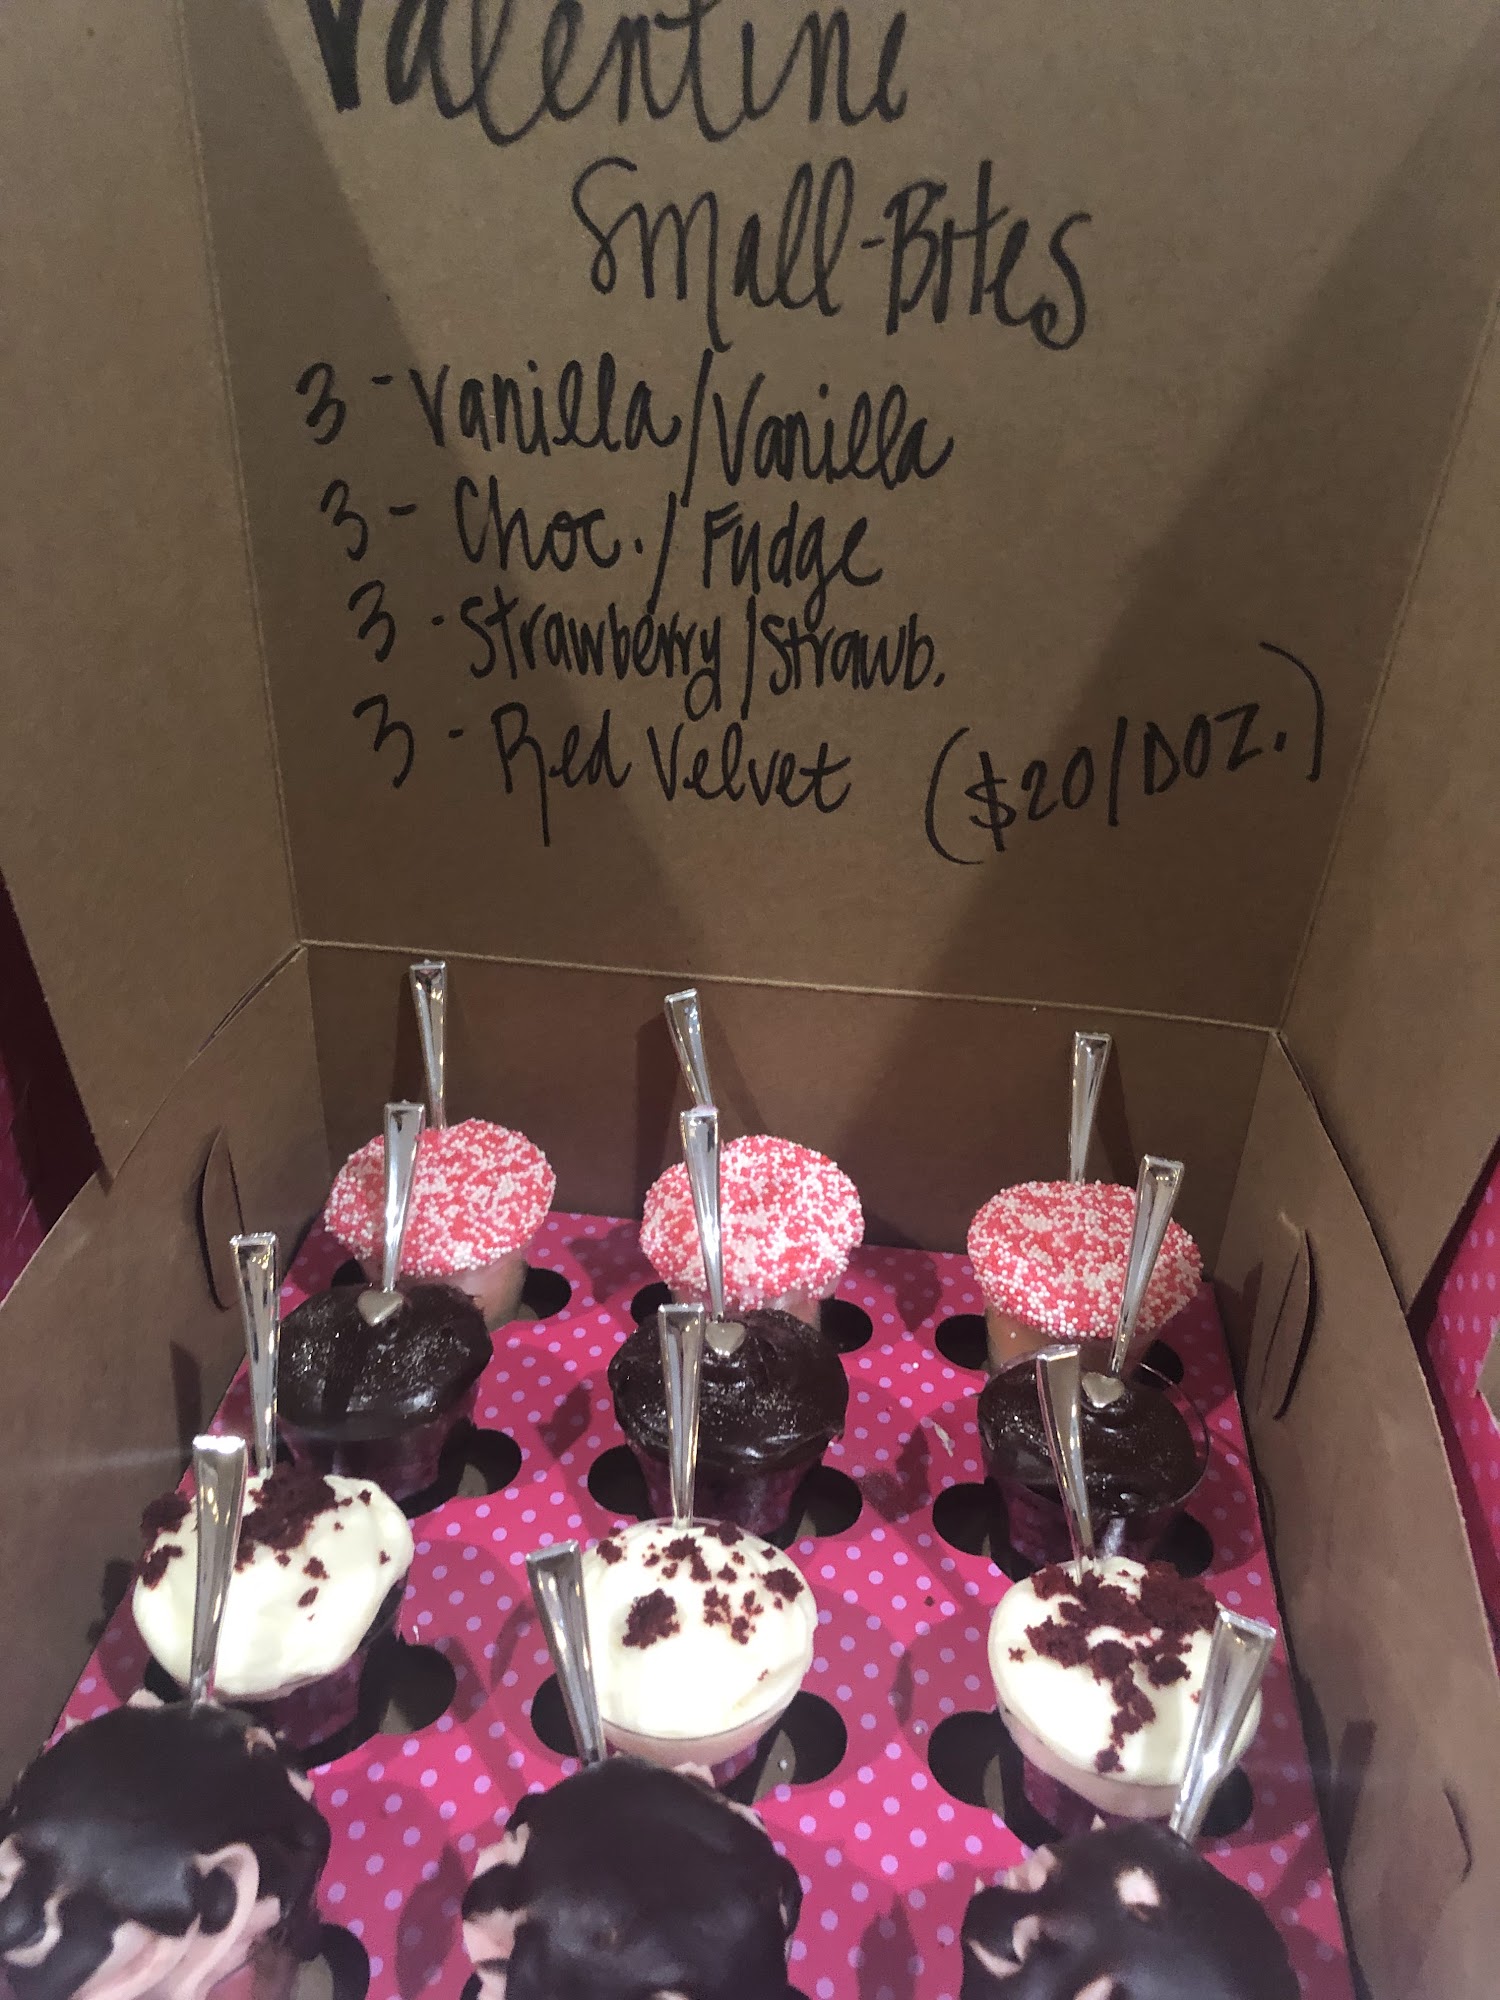 Valentine
Small-Bites
3 - Vanilla/Vanilla
3 - Choc./Fudge
3 - Strawberry/Strawb.
3 - Red Velvet ($20/DOZ.)